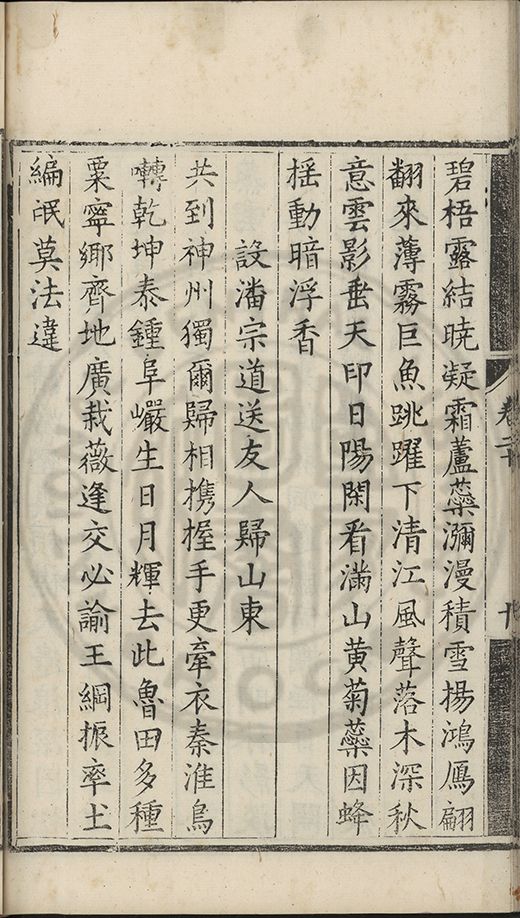 碧梧露結曉凝霜蘆蘂瀰漫積雪揚鴻鴈翩
翻來薄霧巨魚跳躍下清江風聲落木深秋
意雲影垂天印日陽閑看滿山黄菊蘂因蜂
揺動暗浮香
設潘宗道送友人歸山東
共到神州獨爾歸相攜握手更牽衣秦淮烏
囀乾坤泰鍾阜巖生日月輝去此魯田多種
粟寧鄉齊地廣栽薇逢交必諭王綱振率土
編氓莫法違
卷二十
十